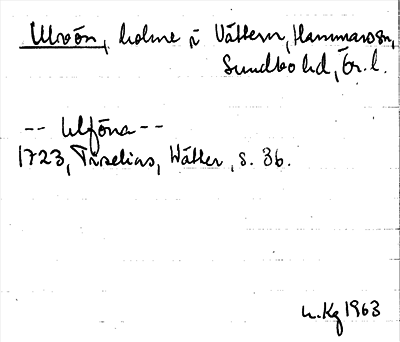 Ulvön, holme i Vättern, Hammars sn,
Sundbo hd, Ör. l.
-- Ulföna --
1723, Tiselius, Wätter, s. 36.
L. Kg 1963